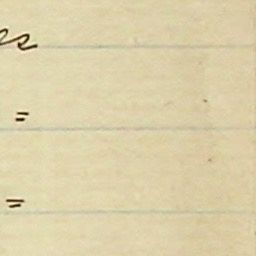 es
=
=